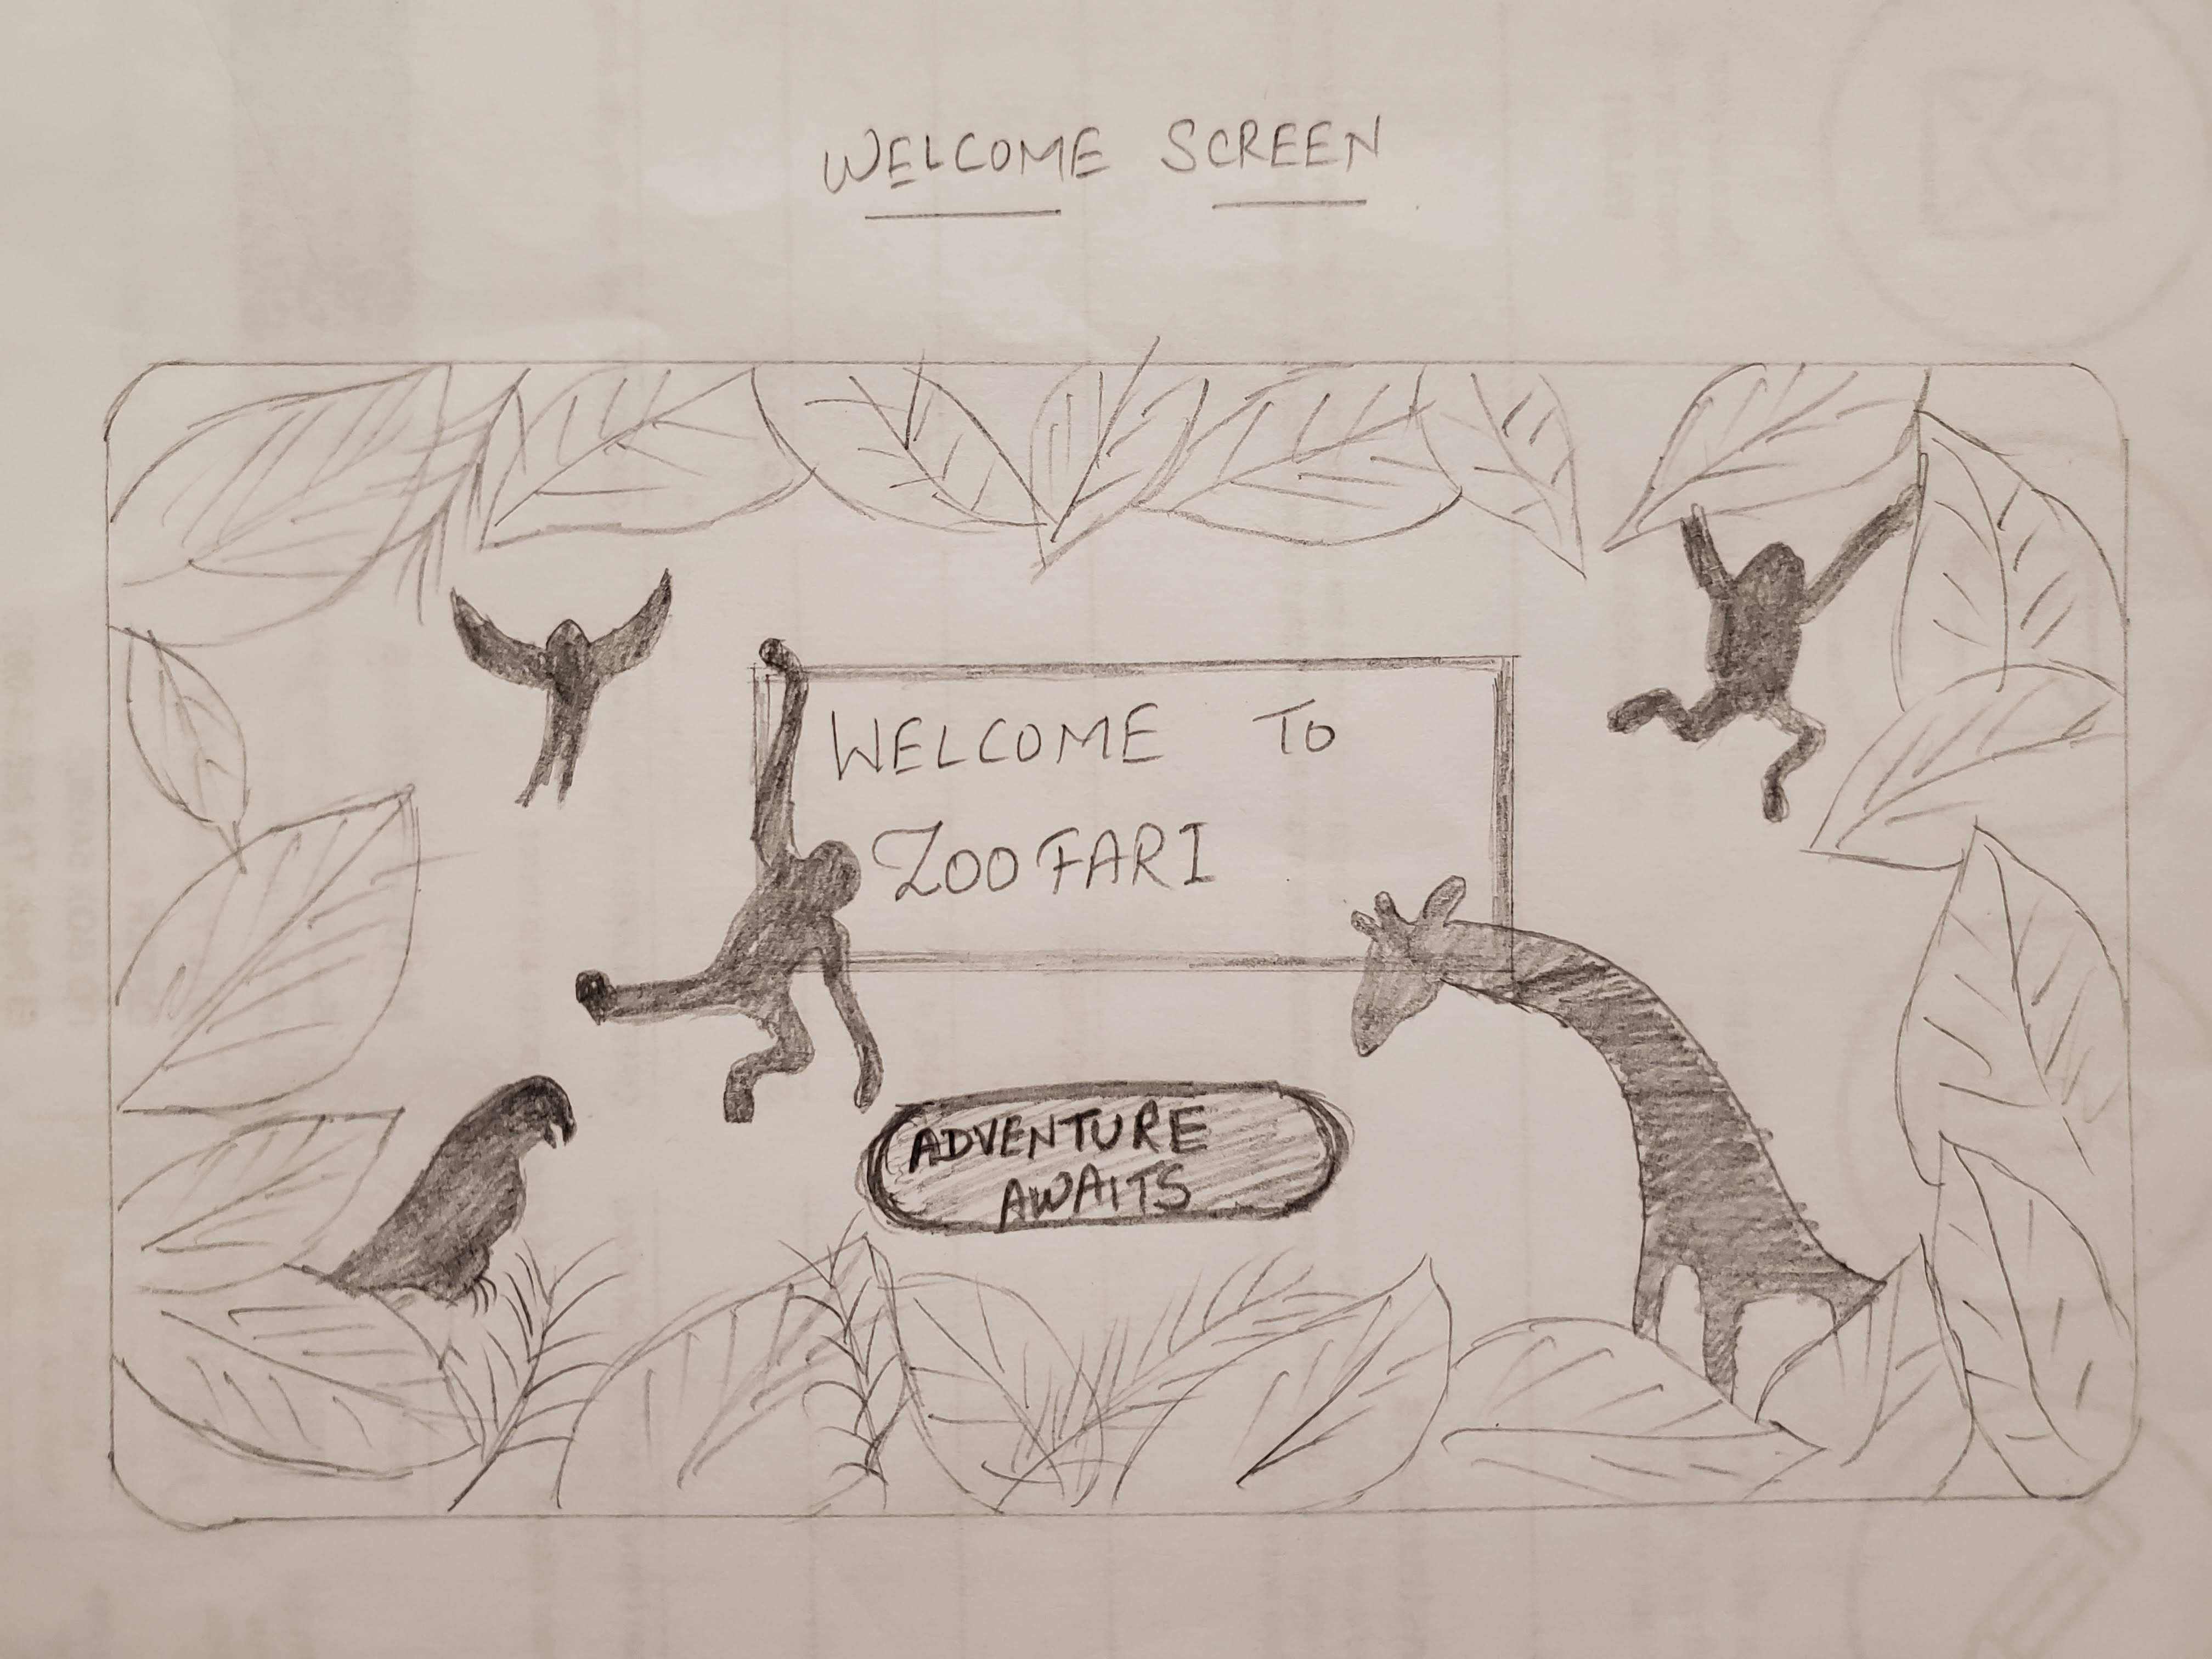 WELCOME SCREEN
WELCOME TO
ZOOFARI
ADVENTURE
AWAITS